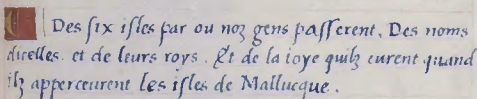 Des six isles par ou noz gens passerent. Des noms
dicelles. et de leurs roys. Et de la ioye quilz eurent quand
ilz apperceurent les isles de Mallucque.